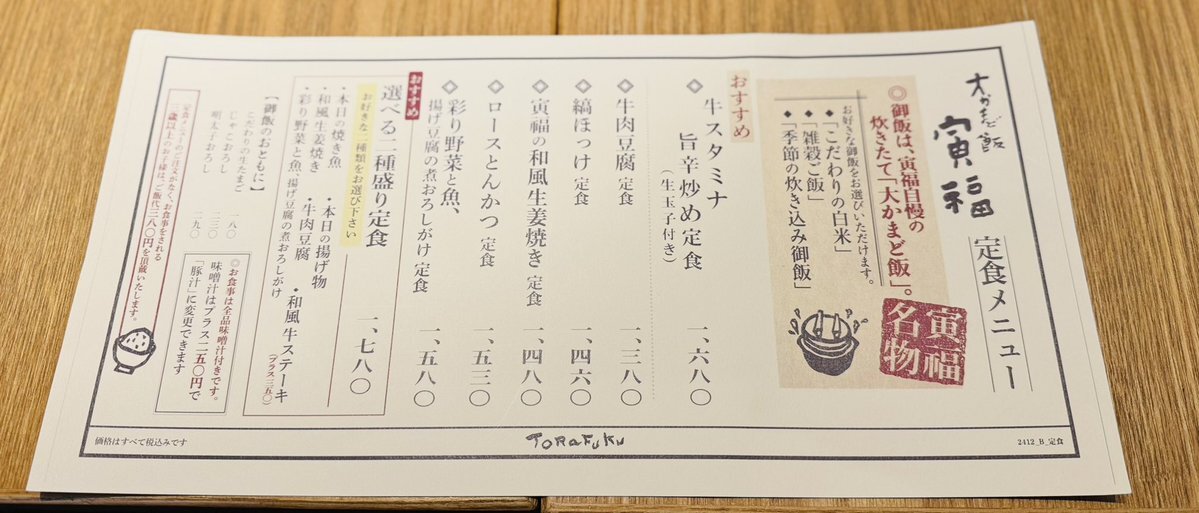 大かまど飯
寅福
定食メニュー
◎御飯は、寅福自慢の
炊きたて「大かまど飯」。
お好きな御飯をお選びいただけます。
◆「こだわりの白米」
◆「雑穀ご飯」
◆「季節の炊き込み御飯」
寅福
名物
おすすめ
◈牛スタミナ
旨辛炒め定食
(生玉子付き)
一、六八〇
◈牛肉豆腐 定食
一、三八〇
◈縞ほっけ 定食
一、四六〇
◈寅福の和風生姜焼き 定食
一、四八〇
◈ロースとんかつ 定食
一、五三〇
◈彩り野菜と魚、
揚げ豆腐の煮おろしがけ 定食
一、五八〇
おすすめ
選べる二種盛り定食
お好きな二種類をお選び下さい
一、七八〇
・本日の焼き魚
・本日の揚げ物
・和風生姜焼き
・牛肉豆腐
・和風牛ステーキ
(プラス三五〇)
・彩り野菜と魚、揚げ豆腐の煮おろしがけ
【御飯のおともに】
こだわりの生たまご 一八〇
じゃこおろし 三三〇
明太子おろし 二九〇
◎お食事は全品味噌汁付きです。
味噌汁はプラス二五〇円で
「豚汁」に変更できます
定食メニューのご注文がなく、お食事をされる
三歳以上のお子様は、ご飯代三八〇円を頂戴いたします。
価格はすべて税込みです
TORAFUKU
2412_B_定食